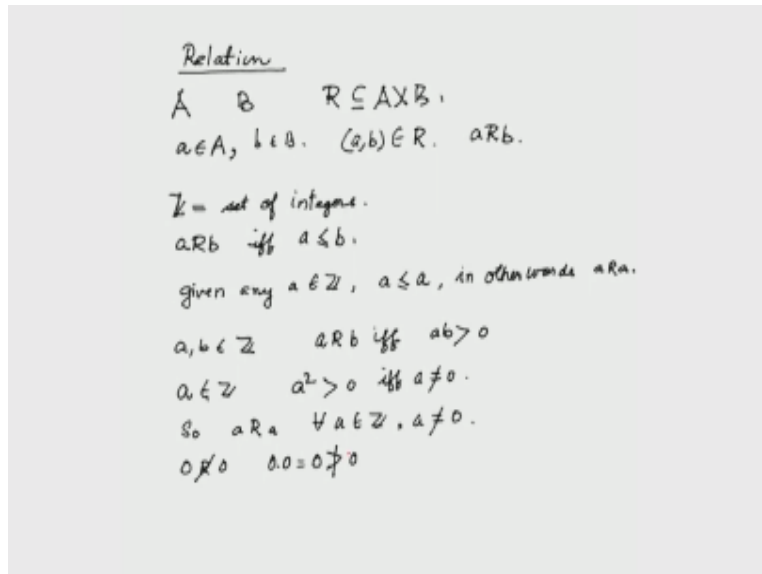 Relation
A B R ⊆ A×B.
a∈A, b∈B. (a,b)∈R. aRb.
ℤ = set of integers.
aRb iff a≤b.
given any a∈ℤ, a≤a, in other words aRa.
a,b∈ℤ aRb iff ab>0
a∈ℤ a²>0 iff a≠0.
So aRa ∀a∈ℤ, a≠0.
0R̸0 0.0=0≯0